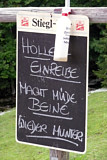 Stiegl
HÖLLEN
EINREIBE
MACHT MÜDE
BEINE
WIEDER MUNTER